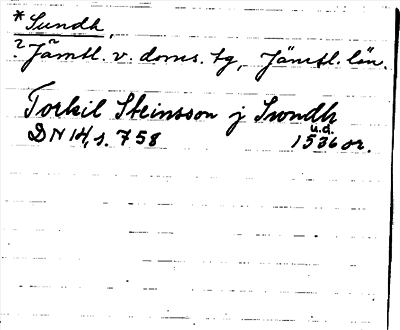 *Sundh,
? Jämtl. v. doms. tg, Jämtl. län.
Torkil Steinsson j Swndh
DN 14, s. 758 u.d. 1536 or.